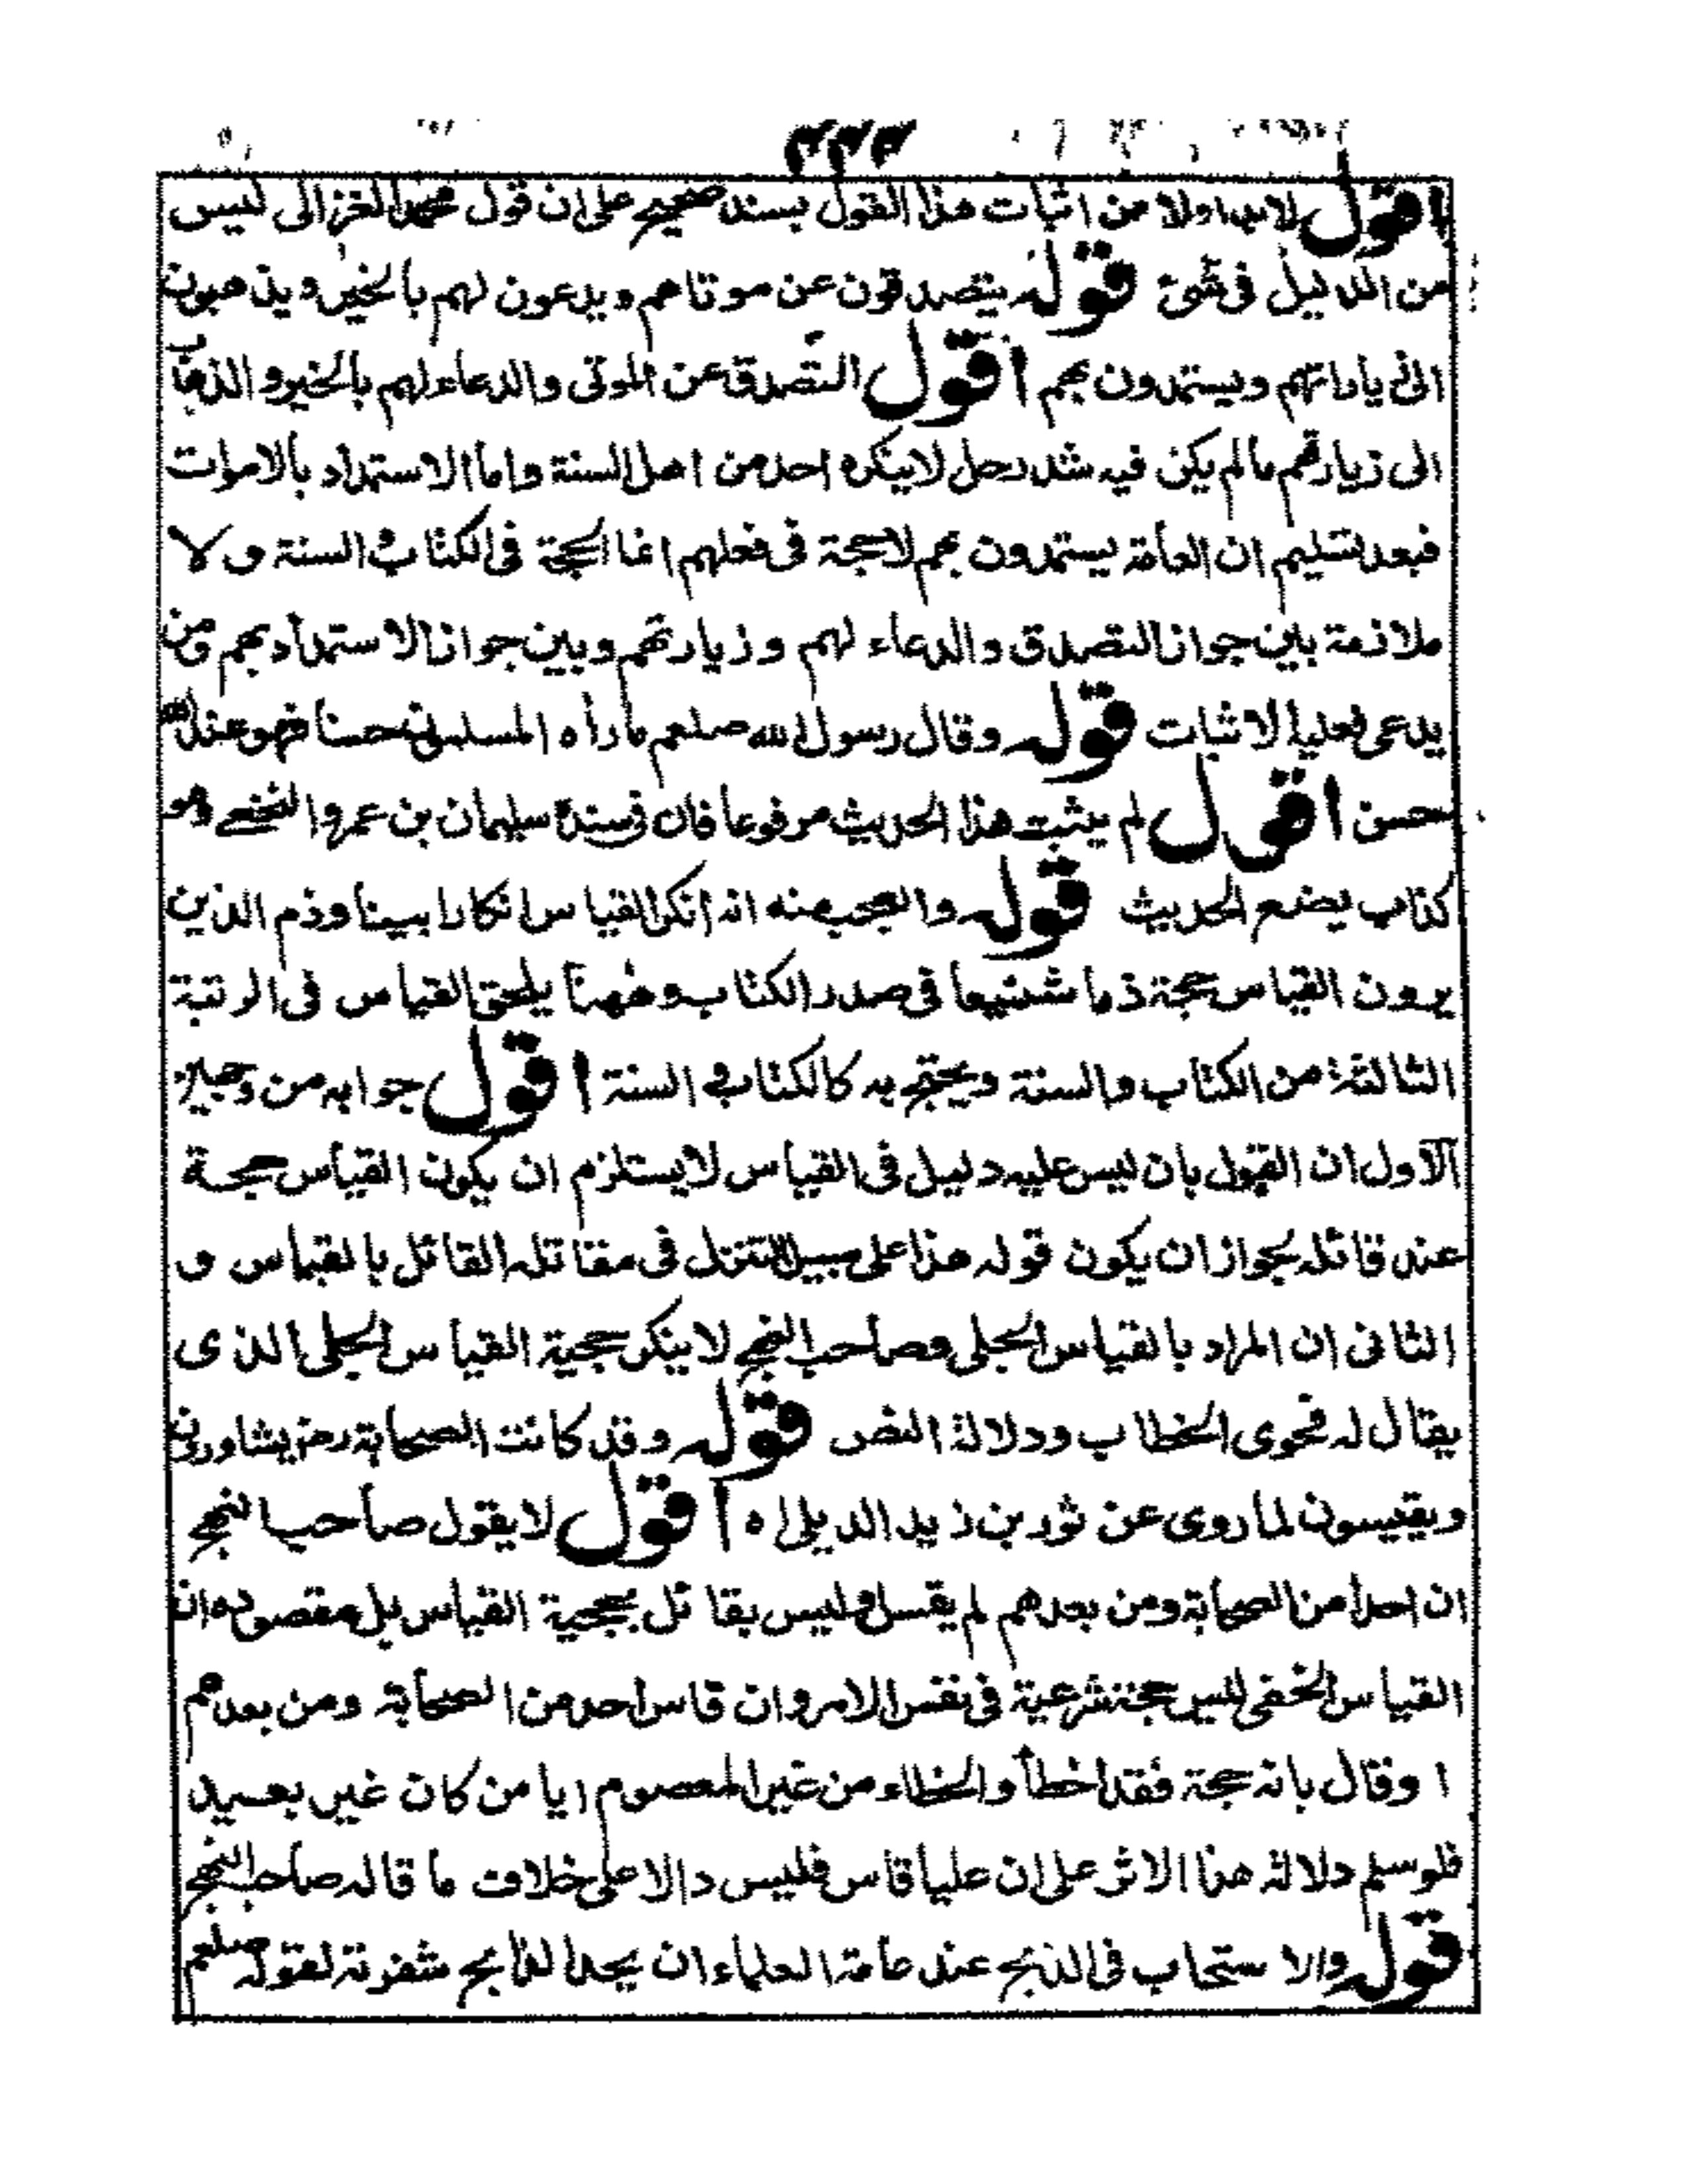 اقول لابد اولا من اثبات هذا القول بسند صحيح على ان قول محمد الغزالى ليس
من الدليل فى شئ قوله يتصدقون عن موتاهم ويدعون لهم بالخير ويذهبون
الى زياراتهم ويستمدون بهم اقول التصدق عن الموتى والدعاء لهم بالخير والذهاب
الى زيارتهم مالم يكن فيه شد رحل لاينكره احد من اهل السنة واما الاستمداد بالاموات
فبعد تسليم ان العامة يستمدون بهم لاحجة فى فعلهم انما الحجة فى الكتاب والسنة ولا
ملازمة بين جواز التصدق والدعاء لهم وزيارتهم وبين جواز الاستمداد بهم ومن
يدعى فعليه الاثبات قوله وقال رسول الله صلعم ماراه المسلمون حسنا فهو عند الله
حسن اقول لم يثبت هذا الحديث مرفوعا فان فى سنده سليمان بن عمرو النخعى وهو
كذاب يضع الحديث قوله والعجب منه انه انكر القياس انكارا بينا وذم الذين
يرون القياس حجة ذما شنيعا فى صدر الكتاب وههنا يلحق القياس فى الرتبة
الثالثة من الكتاب والسنة ويحتج به كالكتاب والسنة اقول جوابه من وجهين
الاول ان القول بان ليس عليه دليل فى القياس لايستلزم ان يكون القياس حجة
عند قائله بجواز ان يكون قوله هذا على سبيل التنزل فى مقاتله القائل بالقياس و
الثانى ان المراد بالقياس الجلى وصاحب النهج لاينكر حجية القياس الجلى الذى
يقال له فحوى الخطاب ودلالة النص قوله وقد كانت الصحابة رضى يشاورون
ويقيسون لما روى عن ثور بن زيد الديلى اه اقول لايقول صاحب النهج
ان احدا من الصحابة ومن بعدهم لم يقس وليس بقائل بحجية القياس بل مقصوده ان
القياس الخفى ليس حجة شرعية فى نفس الامر وان قاس احد من الصحابة ومن بعدهم
او قال بانه حجة فقد اخطأ والخطاء من غير المعصوم ايا من كان غير بعيد
فلو سلم دلالة هذا الاثر على ان عليا قاس فليس دالا على خلاف ما قاله صاحب النهج
قوله والاستحباب فى الذبح عند عامة العلماء ان يحد الذابح شفرته لقوله صلعم